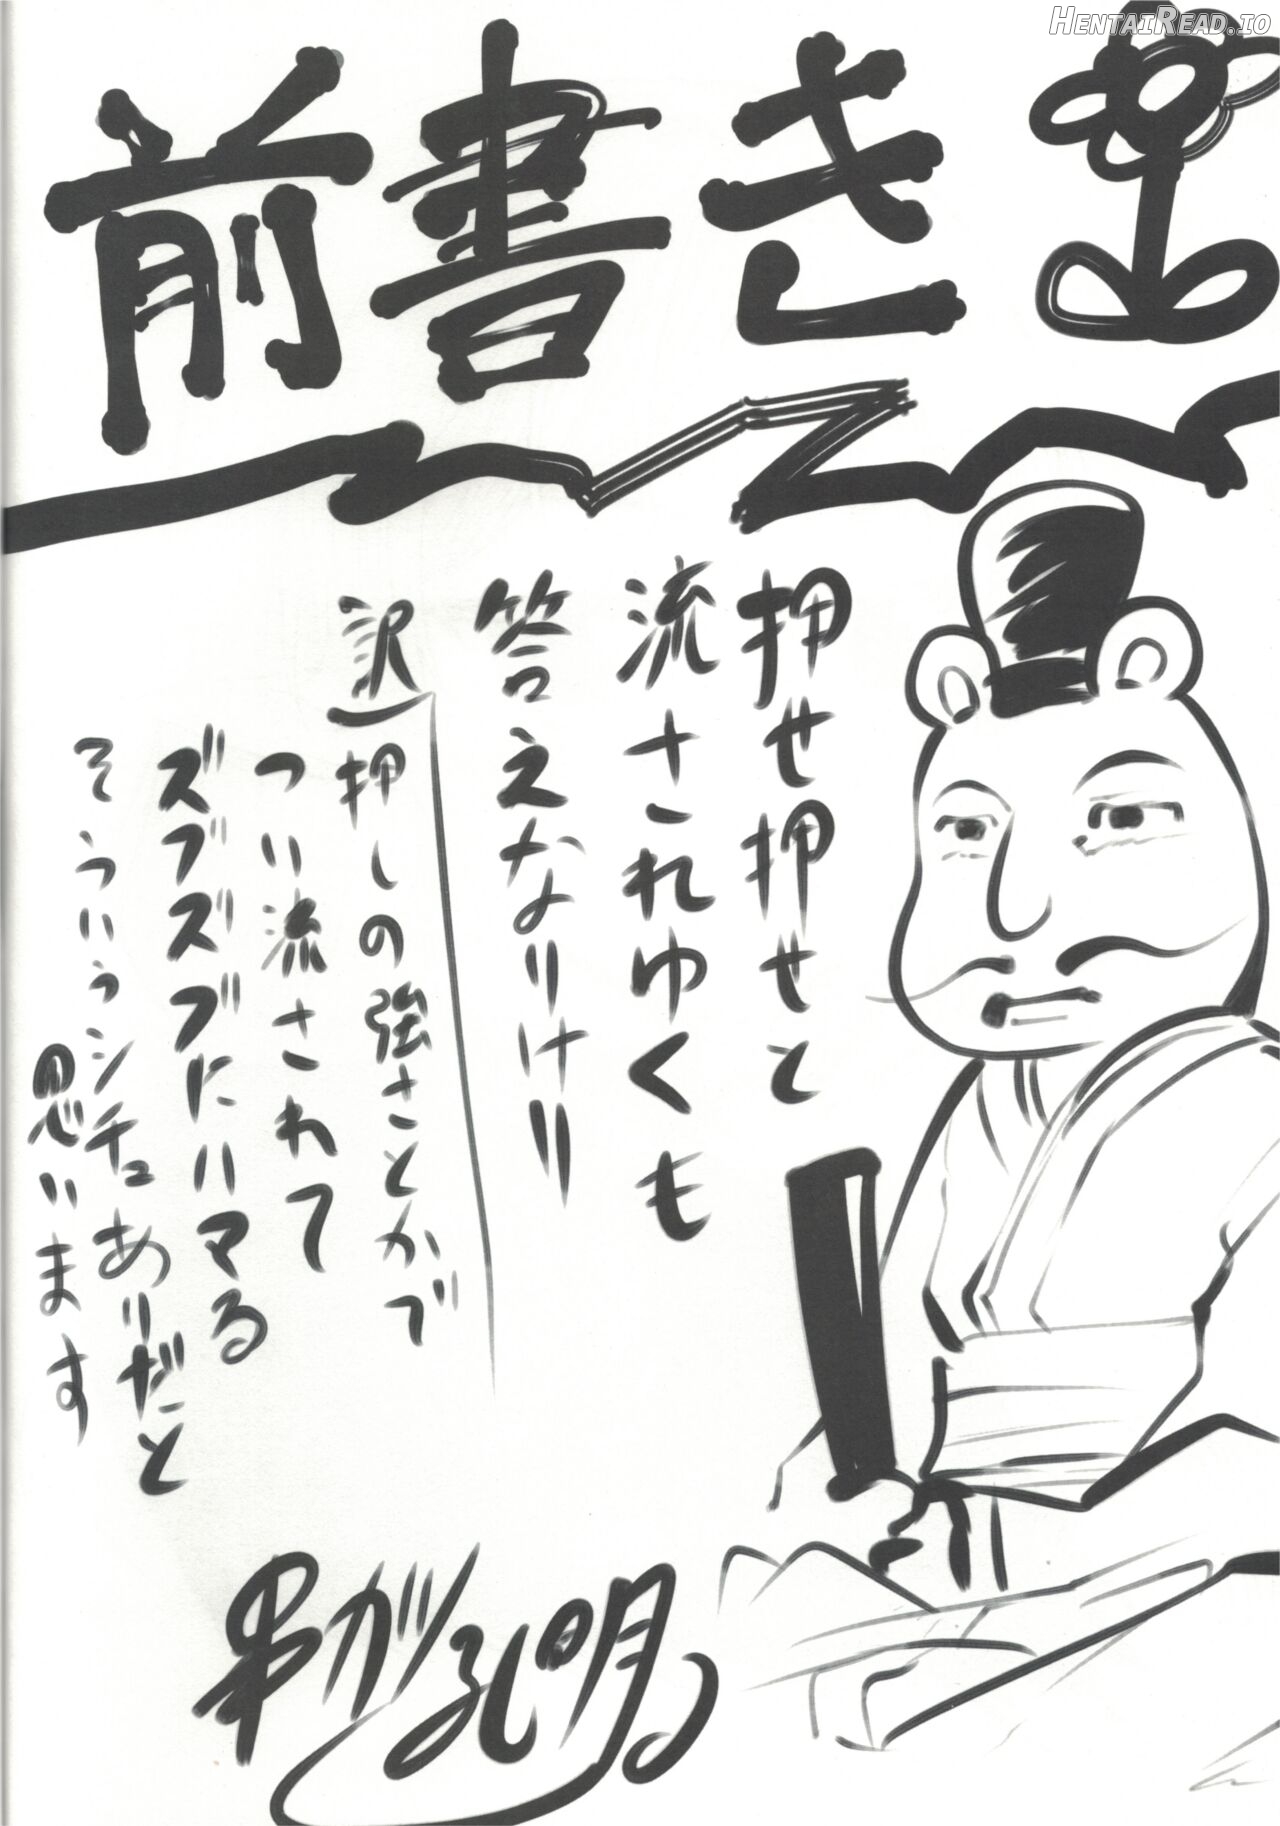 HentaiRead.io
前書き
押せ押せと
流されゆくも
答えなりけり
訳
押しの強さとかで
つい流されて
ズブズブにハマる
そういうシチュありだと
思います